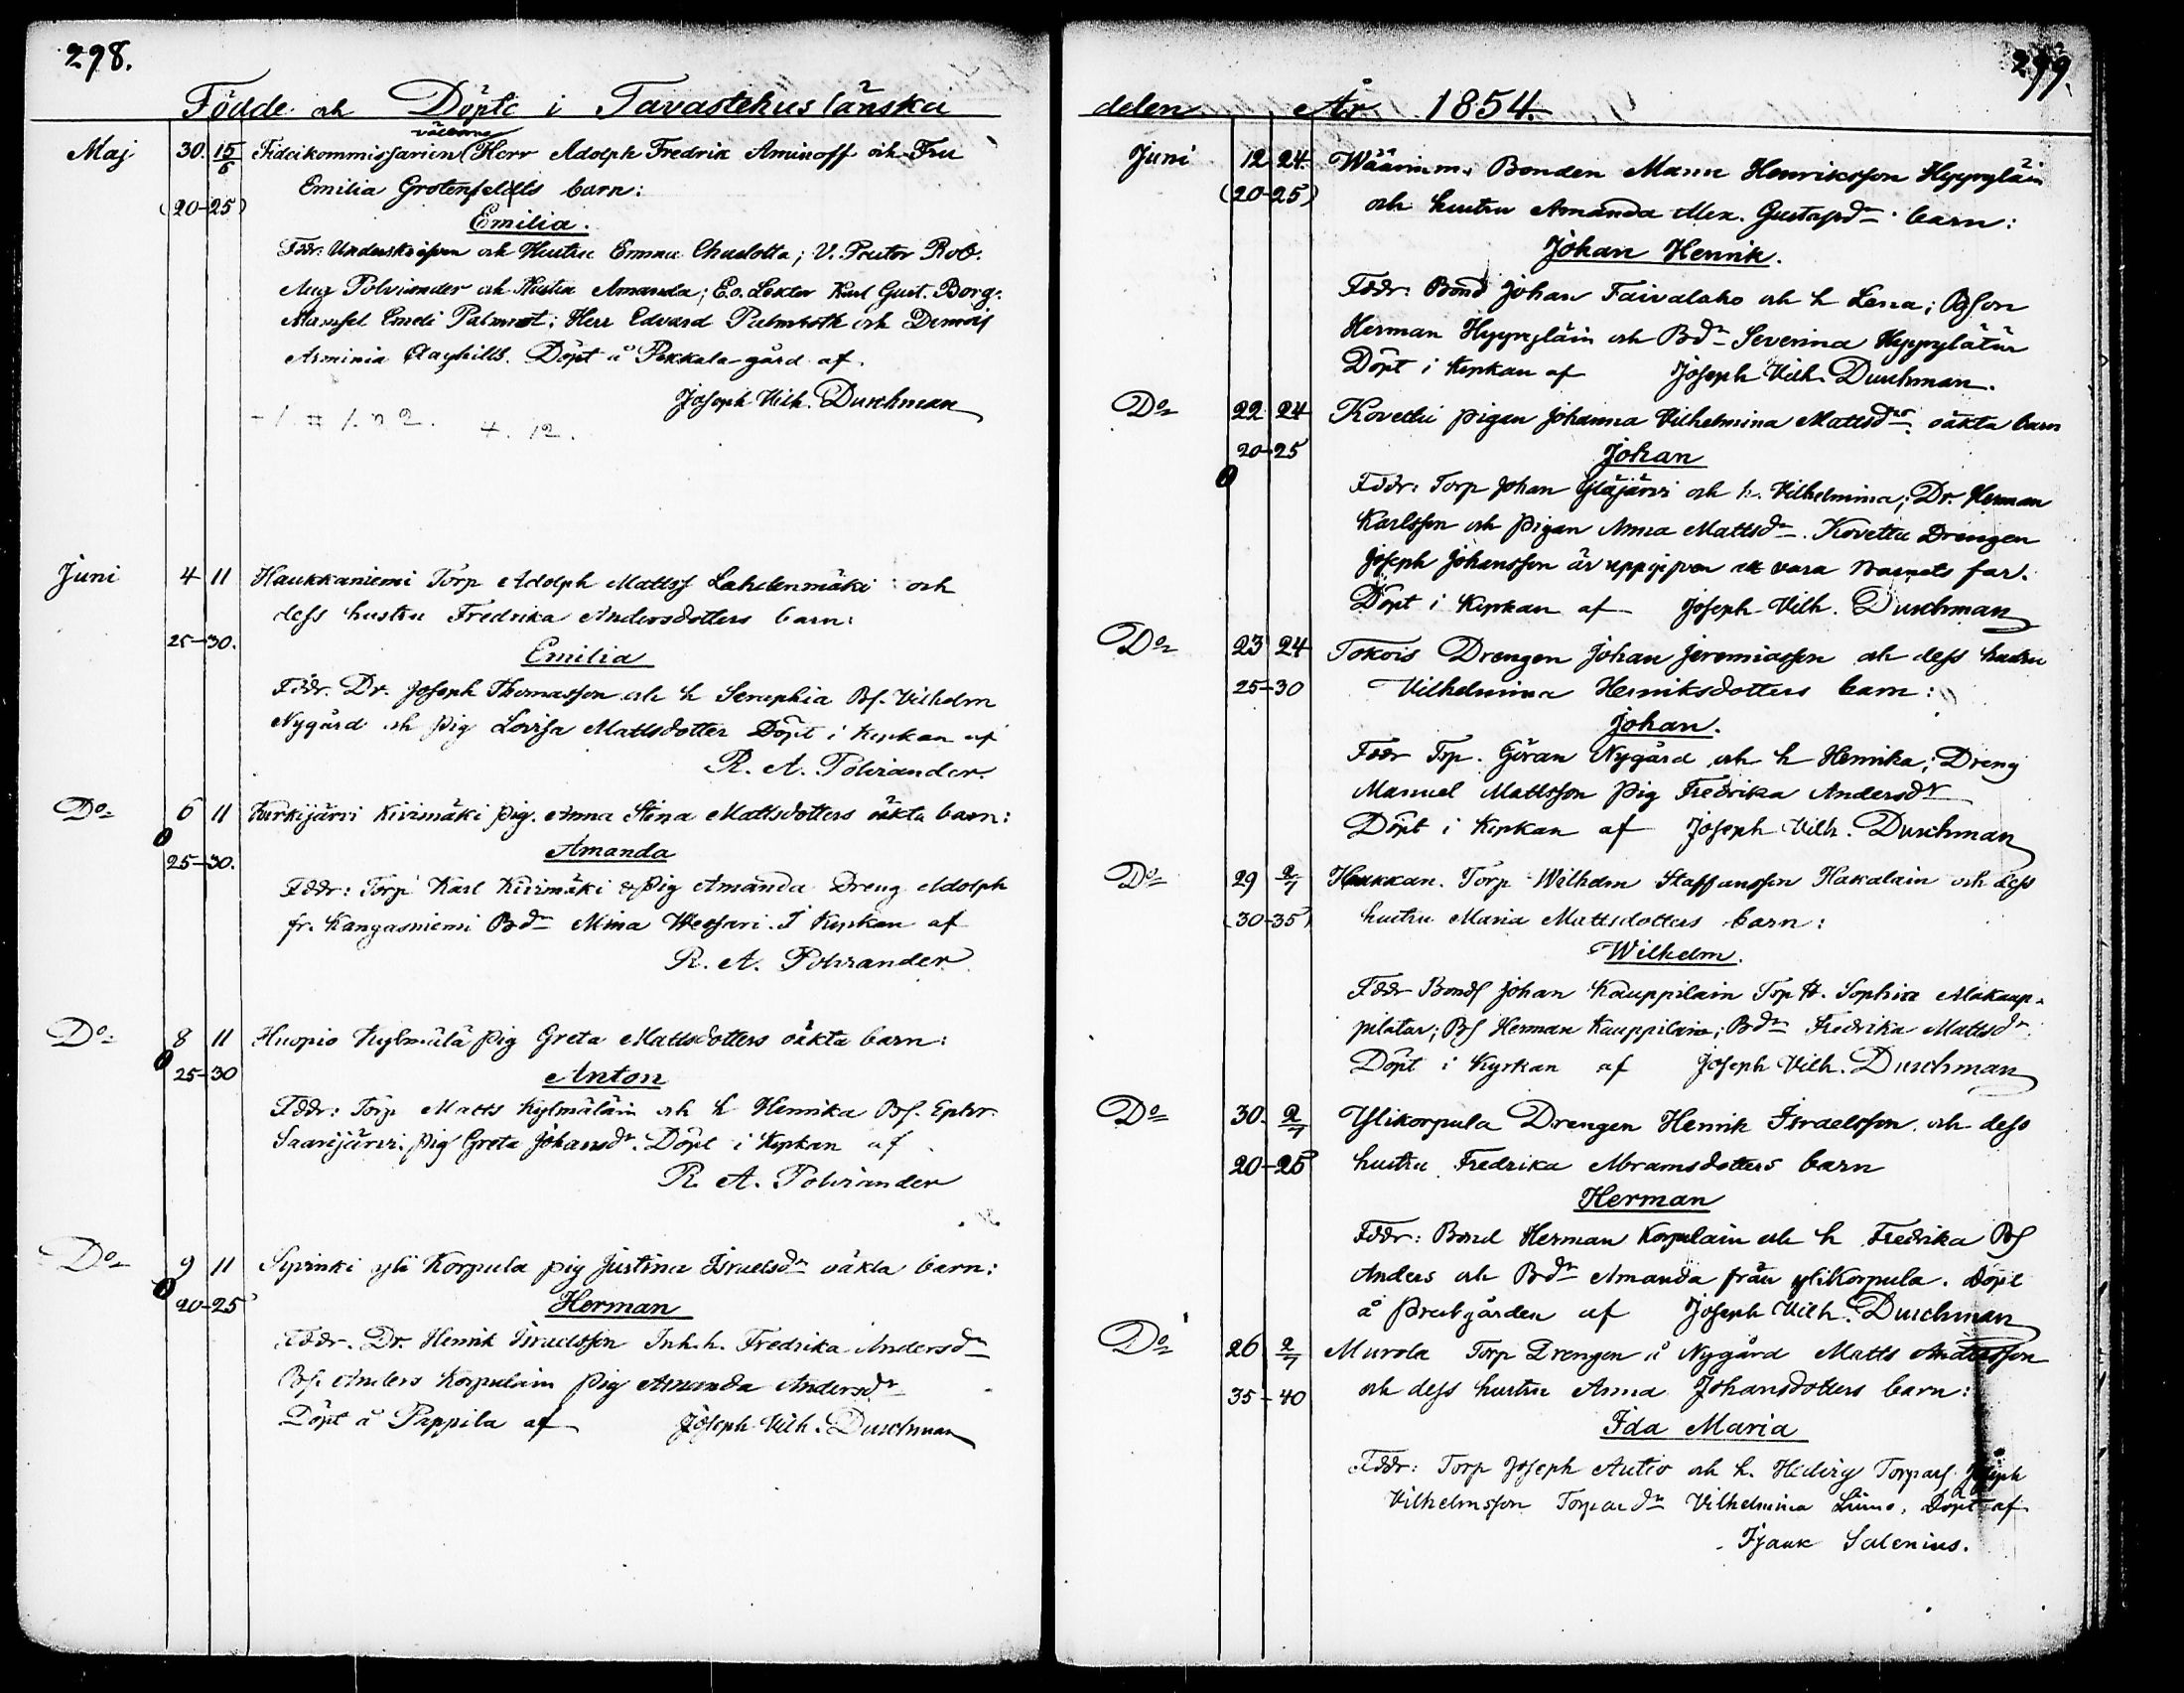 298.
Födde och Döpte i Tavastehus länska
Maj 30 15/6 Fideikommissarien välborne Herr Adolph Fredrik Aminoff och Fru
Emilia Grotenfeldts barn:
(20-25)
Emilia.
Fddr: Underskrifven och Hustru Emma Charlotta; V. Pastor Rob.
Aug Polviander och Hustru Amanda; E.o. Lektor Karl Gust. Borg.
Mamsel Emeli Palmrot; Herr Edvard Palmroth och Demois
Arminia Clayhills. Döpt å Pekkala gård af.
Joseph Vilh. Duschman
Juni 4 11 Haukkaniemi Torp Adolph Mattss Lahdenmäki och
dess hustru Fredrika Andersdotters barn:
25-30.
Emilia
Fddr. Dr. Joseph Thomasson och h Seraphia Bs. Vilhelm
Nygård och Pig Lovisa Mattsdotter Döpt i Kyrkan af
R. A. Polviander.
Do 6 11 Kurkijärvi Kivimäki Pig. Anna Stina Mattsdotters oäkta barn:
25-30.
Amanda
Fddr: Torp Karl Kivimäki & Pig Amanda Dreng Adolph
fr. Kangasniemi Bdr Mina Wessari. I Kyrkan af
R. A. Polviander
Do 8 11 Huopio Kylmälä Pig Greta Mattsdotters oäkta barn:
25-30
Anton
Fddr: Torp Matts Kylmäläin och h Henrika Bs. Ephr.
Saarijärvi. Pig Greta Johansdr. Döpt i Kyrkan af
R. A. Polviander
Do 9 11 Syvinki yli Korpula pig Justina Israelsdr oäkta barn:
20-25
Herman
Fddr. Dr. Henrik Israelsson Inh. h. Fredrika Andersdr
Bs. Anders Korpulain Pig Amanda Andersdr
Döpt å Pappila af Joseph Vilh. Duschman
299.
delen År 1854.
Juni 12 24. Wäärinm. Bonden Manu Henriksson Hyppyläin
(20-25) och hustru Amanda Alex. Gustafsdr barn:
Johan Henrik.
Fddr: Bond Johan Taivalaho och h Lena; Bdson
Herman Hyppyläin och Bdr Severina Hyppylätär
Döpt i Kyrkan af Joseph Vilh. Duschman.
Do 22 24 Kovettu pigan Johanna Vilhelmina Mattsdrs oäkta barn
20-25
Johan
Fddr: Torp Johan Yläjärvi och h. Vilhelmina; Dr. Herman
Karlsson och Pigan Anna Mattsdr. Kovettu Drengen
Joseph Johansson är uppgifven att vara barnets far.
Döpt i Kyrkan af Joseph Vilh. Duschman
Do 23 24 Tokois Drengen Johan Jeremiasson och dess hustru
25-30 Vilhelmina Henriksdotters barn:
Johan.
Fddr Trp. Göran Nygård och h Henrika; Dreng
Manuel Mattsson Pig Fredrika Andersdr
Döpt i Kyrkan af Joseph Vilh. Duschman
Do 29 2/7 Haukkan. Torp Wilhelm Staffansson Hakalain och dess
(30-35) hustru Maria Mattsdotters barn:
Wilhelm.
Fddr Bonds Johan Kauppilain Trp H. Sophia Alakaup-
pilatar; Bs Herman Kauppilain; Bdr Fredrika Mattsdr.
Döpt i Kyrkan af Joseph Vilh. Duschman
Do 30. 2/7 Ylikorpula Drengen Henrik Israelsson och dess
20-25 hustru Fredrika Abramsdotters barn
Herman
Fddr: Bond Herman Korpulain och h Fredrika Bs
Anders och Bdr Amanda från ylikorpula. Döpt
å Prestgården af Joseph Vilh. Duschman
Do 26 2/7 Murola Torp Drengen å Nygård Matts Andersson
35-40 och dess hustru Anna Johansdotters barn:
Ida Maria
Fddr: Torp Joseph Autio och h. Hedvig Torpars Joseph
Vilhelmsson Torpardr Vilhelmina Liimo. Döpt af
Isaak Salenius.